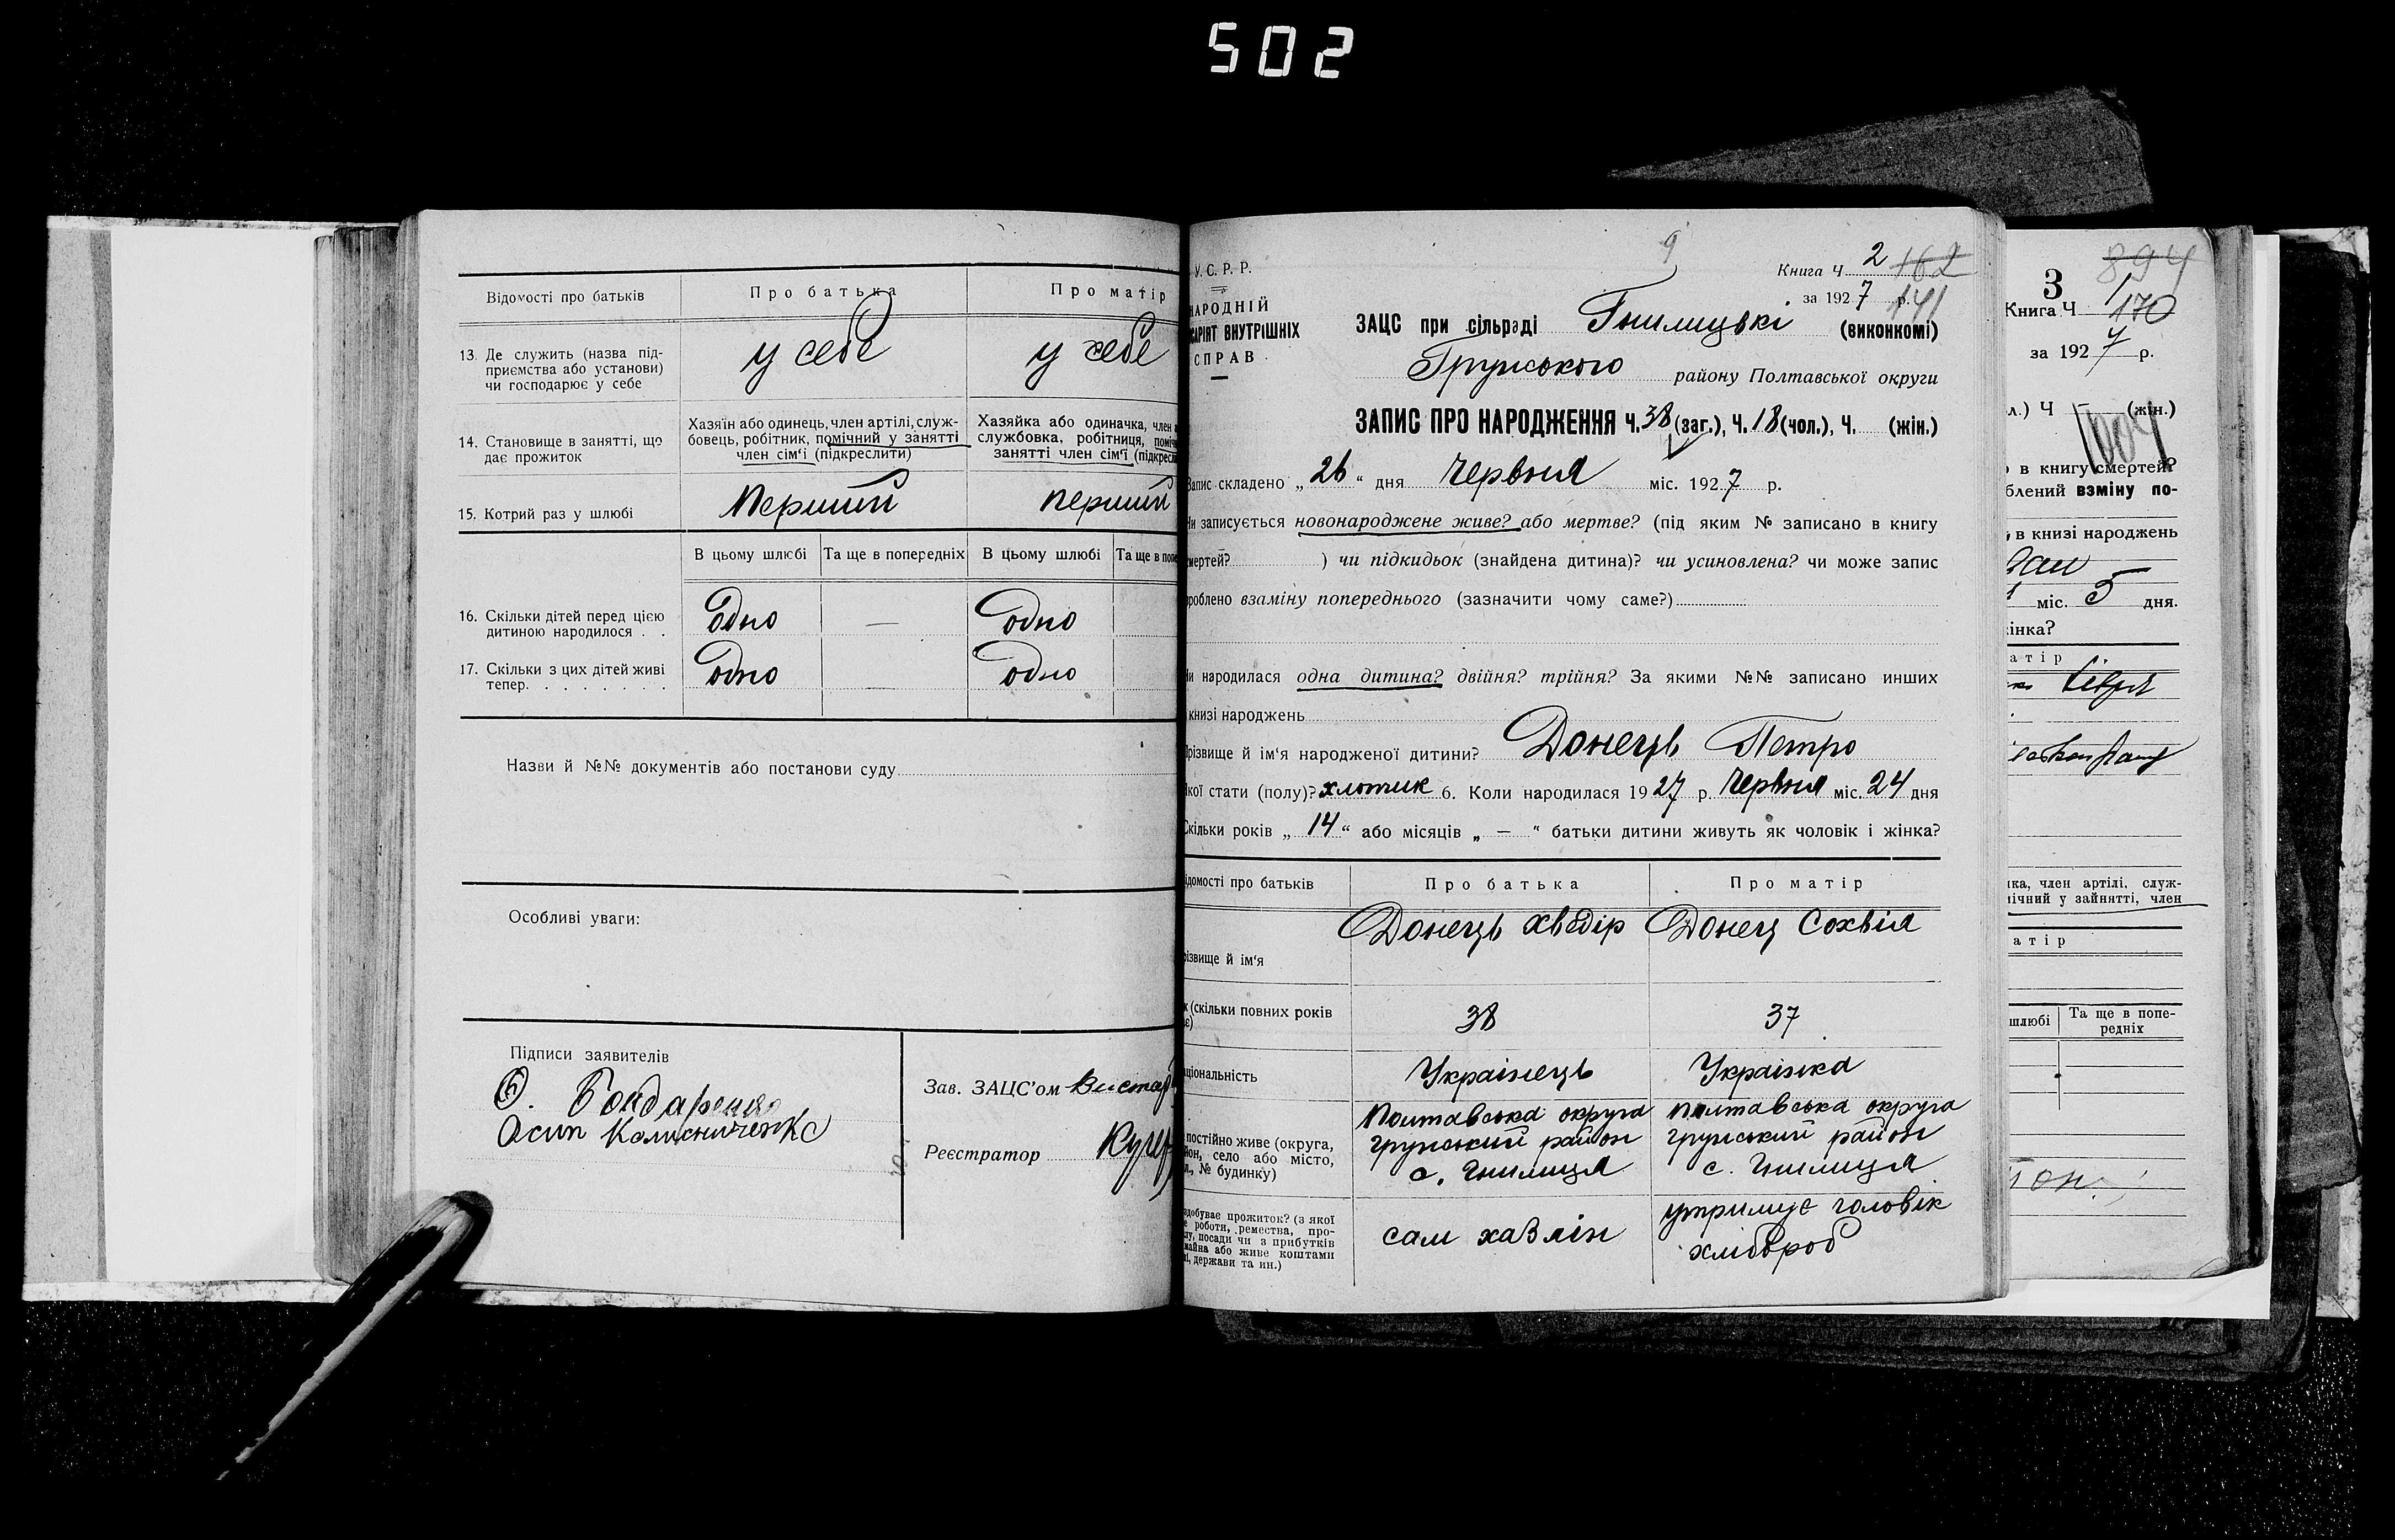 502
Відомості про батьків
Про батька
Про матір
13. Де служить (назва під-
приємства або установи)
чи господарює у себе
у себе
у себе
14. Становище в занятті, що
дає прожиток
Хазяїн або одинець, член артілі, служ-
бовець, робітник, помічний у занятті
член сім'ї (підкреслити)
Хазяйка або одиначка, член
службовка, робітниця,
занятті член сім'ї
15. Котрий раз у шлюбі
Перший
перший
В цьому шлюбі
Та ще в попередніх
В цьому шлюбі
Та ще в
16. Скільки дітей перед цією
дитиною народилося . .
одно
—
одно
17. Скільки з цих дітей живі
тепер. . . . . . . .
одно
—
одно
Назви й №№ документів або постанови суду
Особливі уваги:
Підписи заявителів
Бондаренко
Осип
Зав. ЗАЦС'ом
Реєстратор
9
У. С. Р. Р.
НАРОДНІЙ
ВНУТРІШНІХ
СПРАВ
Книга Ч 2 162
за 1927 р. 141
ЗАЦС при сільраді Гнилицькі (виконкомі)
Грунського району Полтавської округи
ЗАПИС ПРО НАРОДЖЕННЯ Ч. 38 (заг.), Ч. 18 (чол.), Ч. (жін.)
Запис складено „ 26 “ дня Червня міс. 1927 р.
Чи записується новонароджене живе? або мертве? (під яким № записано в книгу
смертей? ) чи підкидьок (знайдена дитина)? чи усиновлена? чи може запис
зроблено взаміну попереднього (зазначити чому саме?)
Чи народилася одна дитина? двійня? трійня? За якими №№ записано инших
книзі народжень
Прізвище й ім'я народженої дитини? Донець Петро
Якої стати (полу)? хлопчик 6. Коли народилася 1927 р. Червня міс. 24 дня
Скільки років „ 14 “ або місяців „ — “ батьки дитини живуть як чоловік і жінка?
Відомості про батьків
Про батька
Про матір
Прізвище й ім'я
Донець Хведір
Донец Сохвія
(скільки повних років
38
37
Національність
Українець
Українка
постійно живе (округа,
район, село або місто,
№ будинку)
Полтавська округа
грунський район
с. Гнилиця
полтавська округа
грунський район
с. Гнилиця
здобуває прожиток? (з якої
роботи, ремества, про-
посади чи з прибутків
майна або живе коштами
держави та ин.)
сам хазяїн
утримує чоловік
хлібороб
3
894
Книга Ч 170
за 1927 р.
Ч — (жін.)
в книгу смертей?
взміну по-
в книзі народжень
міс. 5 дня.
жінка?
член артілі, служ-
у зайнятті, член
шлюбі
Та ще в попе-
редніх